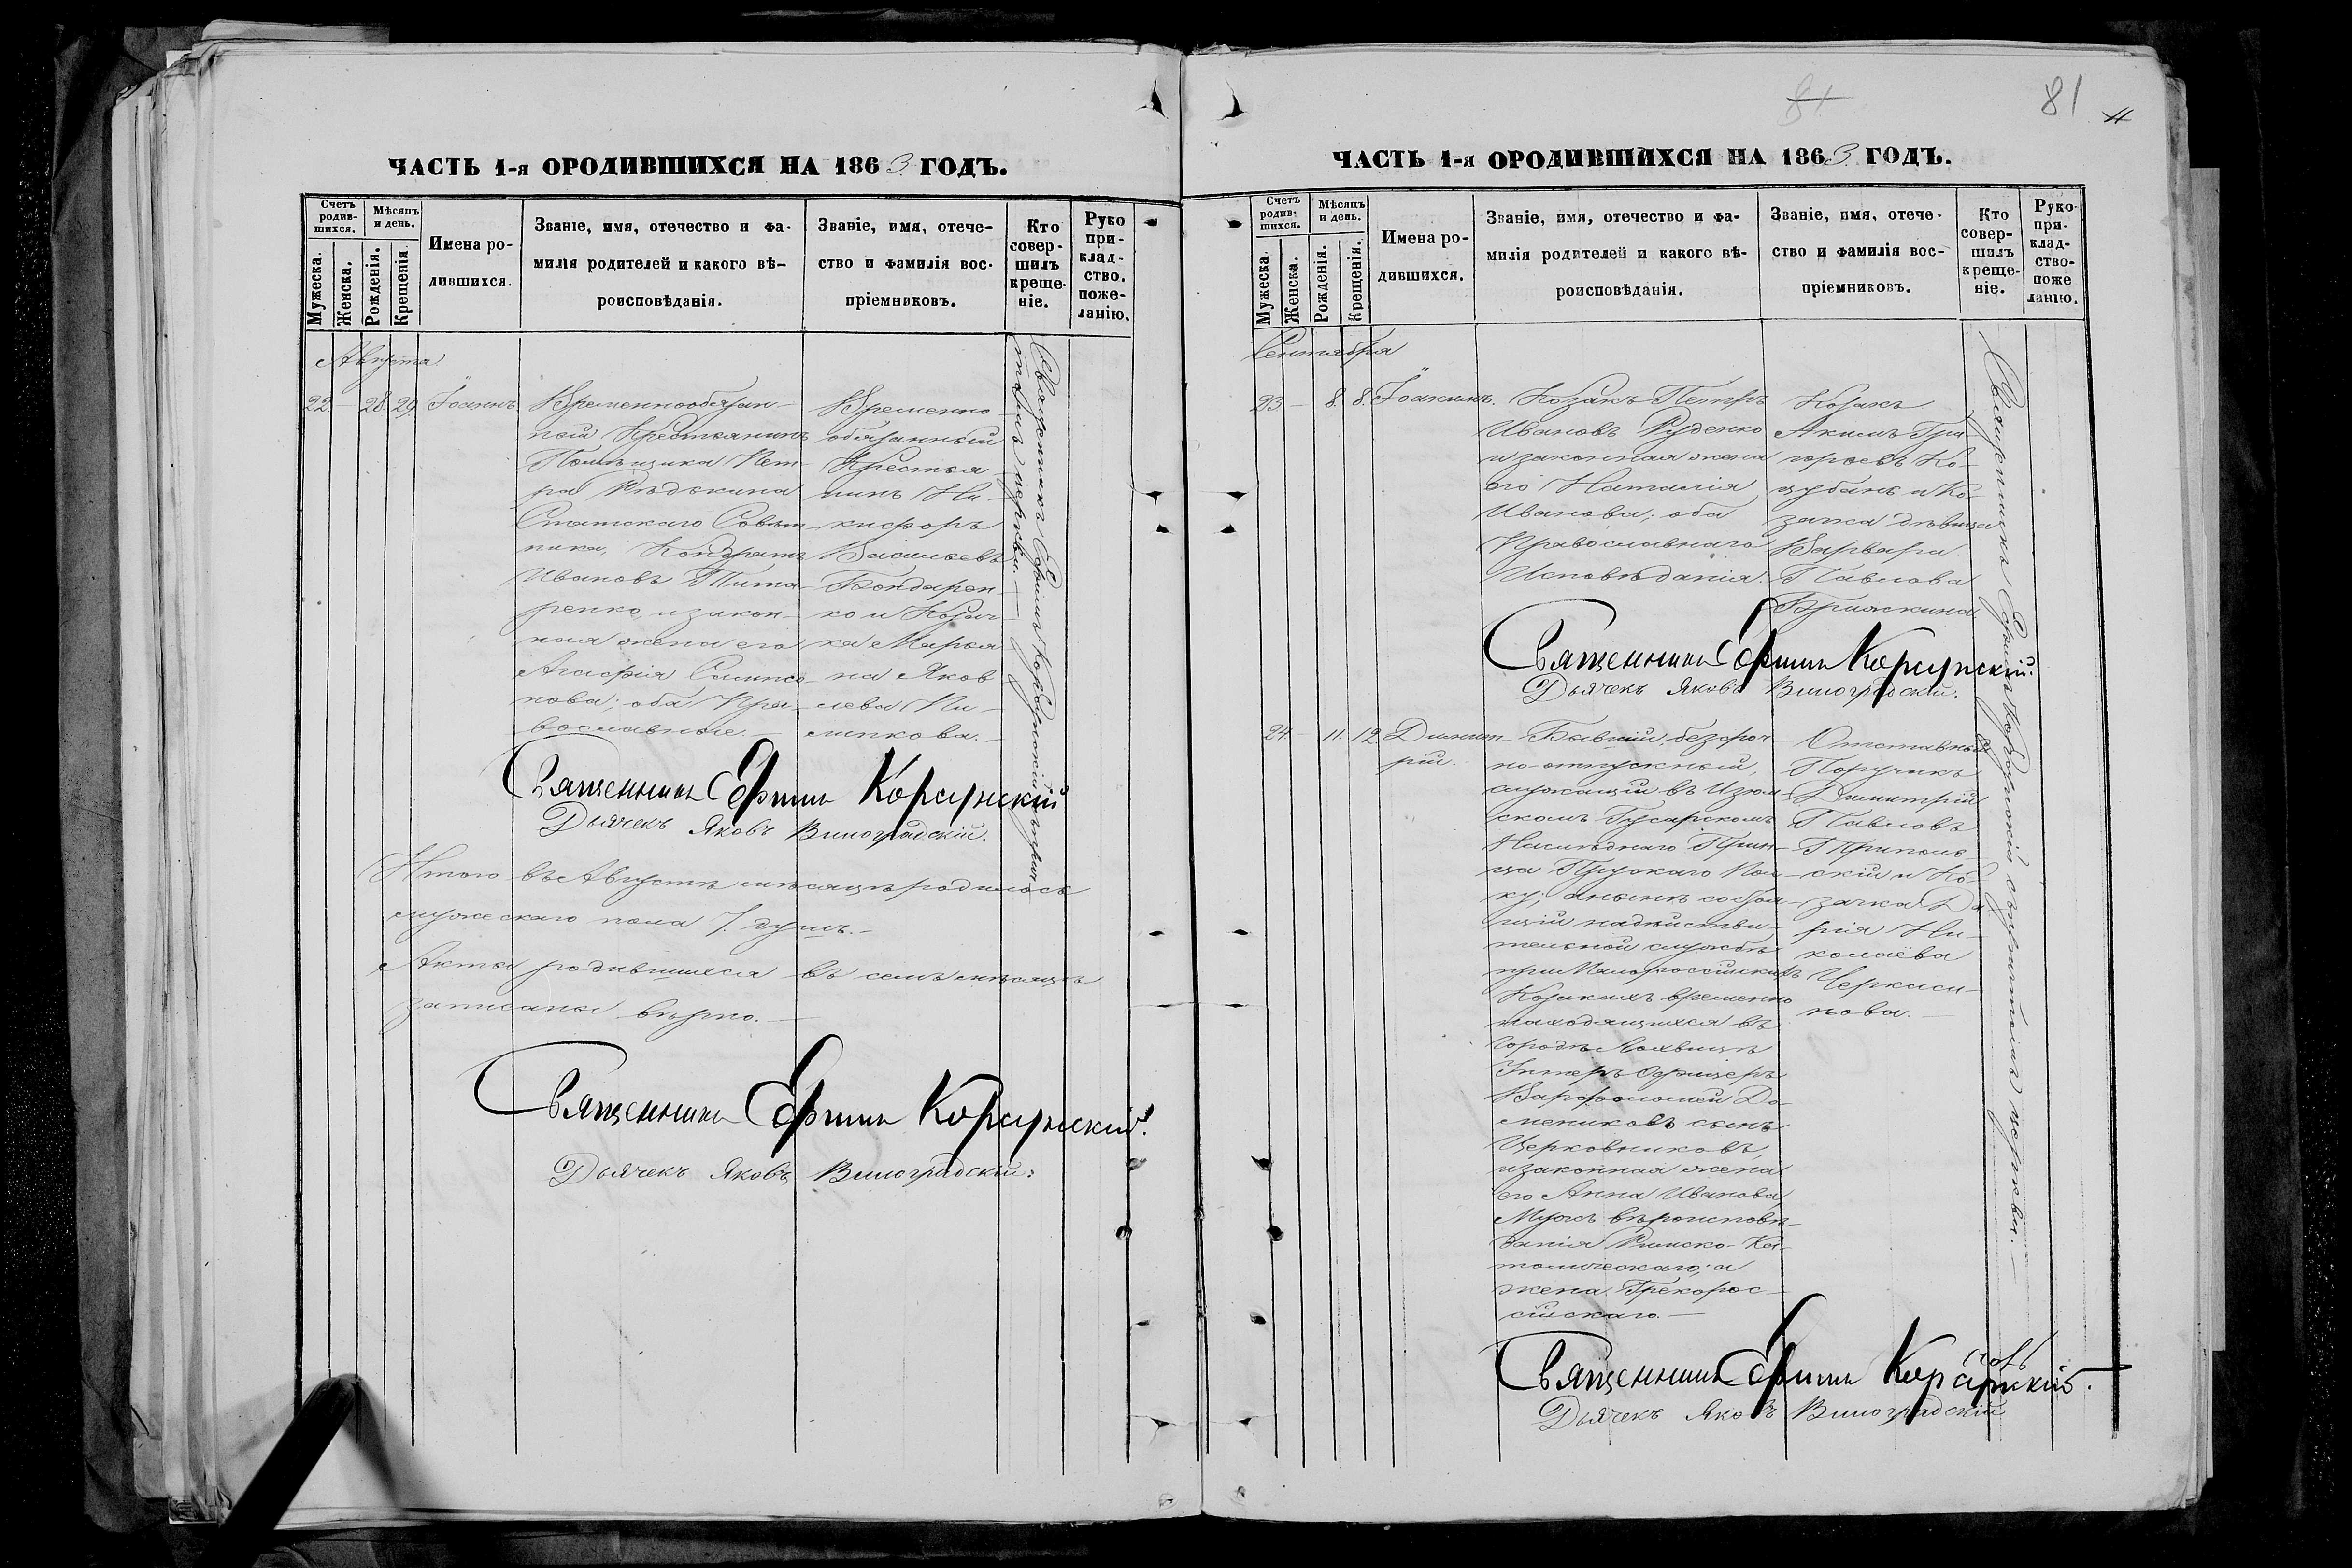 ЧАСТЬ 1-я ОРОДИВШИХСЯ НА 1863 ГОДЪ.
Счетъ родив-шихся.
Мѣсяцъ и день.
Мужеска.
Женска.
Рожденія.
Крещенія.
Имена ро-
дившихся.
Званіе, имя, отечество и фа-
милія родителей и какого вѣ-
роисповѣданія.
Званіе, имя, отече-
ство и фамилія вос-
пріемниковъ.
Кто
совер-
шилъ
креще-
ніе.
Руко
при-
клад-
ство.
поже-
ланію.
Августа
22 – 28. 29. Іоаннъ
Временнообязан-
ной Крестьянинъ
Помѣщика Пет-
ра
Статскаго Совѣт-
ника, Кондратъ
Ивановъ Тита-
ренко, и закон-
ная жена его
Агафія Симео-
нова; оба Пра-
вославные.
Временно
обязанный
Крестья-
нинъ Ни-
кифоръ
Васильевъ
Бондарен-
ко и Козач-
ка Марья-
на Яков-
лева
Священникъ Ефимъ Корсунскій
Дьячекъ Яковъ Виноградскій.
Итого въ Августѣ мѣсяцѣ родилось
мужескаго пола 7. душъ.
Акты родившихся въ семъ мѣсяцѣ
записаны вѣрно.
Священникъ Ефимъ Корсунскій.
Дьячекъ Яковъ Виноградскій.
81
81
ЧАСТЬ 1-я ОРОДИВШИХСЯ НА 1863 ГОДЪ.
Счетъ
родив-
шихся.
Мѣсяцъ
и день.
Мужеска.
Женска.
Рожденія.
Крещенія.
Имена ро-
дившихся.
Званіе, имя, отечество и фа-
милія родителей и какого вѣ-
роисповѣданія.
Званіе, имя, отече-
ство и фамилія вос-
пріемниковъ.
Кто
совер-
шилъ
креще-
ніе.
Руко-
при-
клад-
ство-
поже
ланію.
Сентября
23 – 8. 8. Іоакимъ.
Козакъ Петръ
Ивановъ Руденко
и законная жена
его Наталія
Иванова; оба
Православнаго
Исповѣданія.
Козакъ
Акимъ Гри-
горьевъ Ко-
цубанъ и Ко-
зачка дѣвица
Варвара
Павлова
Священникъ Ефимъ Корсунскій.
Дьячекъ Яковъ Виноградскій.
24 – 11. 12. Димит-
рій.
Бывшій безсроч-
но-отпускный,
служащій въ Изюм-
скомъ Гусарскомъ
Наслѣднаго Прин-
ца Прускаго Пол-
ку, а нынѣ состоя-
щій на дѣйстви-
тельной службѣ
при Малороссійскихъ
Козакахъ временно
находящихся въ
городѣ Лохвицѣ
Унтеръ Офицеръ
Варфоломей До-
мениковъ сынъ
Церковниковъ,
и законная жена
его Анна Иванова
Мужъ вѣроисповѣ-
данія Римско-Ка-
толическаго; а
жена Грекорос-
сійскаго.
Отставный
Поручикъ
Димитрій
Павловъ
Приполь-
скій и Ко-
зачка Да-
рія Ни-
колаева
Черкаси-
нова.
Священникъ Ефимъ Корсунскій.
Дьячекъ Яковъ Виноградскій